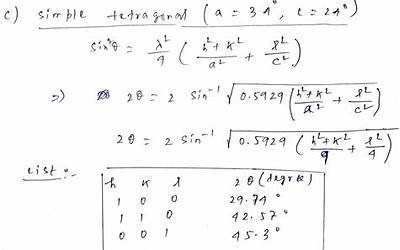 c) simple tetragonal (a = 3A°, c = 2A°)
sin²θ = λ²/4 (h²+k²/a² + l²/c²)
⇒) 2θ = 2 sin⁻¹ √0.5929 (h²+k²/a² + l²/c²)
2θ = 2 sin⁻¹ √0.5929 (h²+k²/9 + l²/4)
List:-
h k l 2θ (degree)
1 0 0 29.74°
1 1 0 42.57°
0 0 1 45.3°